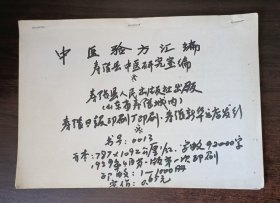 中医验方汇编
寿阳县中医研究室编
寿阳县人民出版社出版
(山东省寿阳城内)
寿阳日报印刷厂印刷·寿阳新华书店发行
书号:0013
开本:787×1092公厘1/32 字数92000字
1959年6月第一版第一次印刷
印数:1—1000册
定价:0.65元